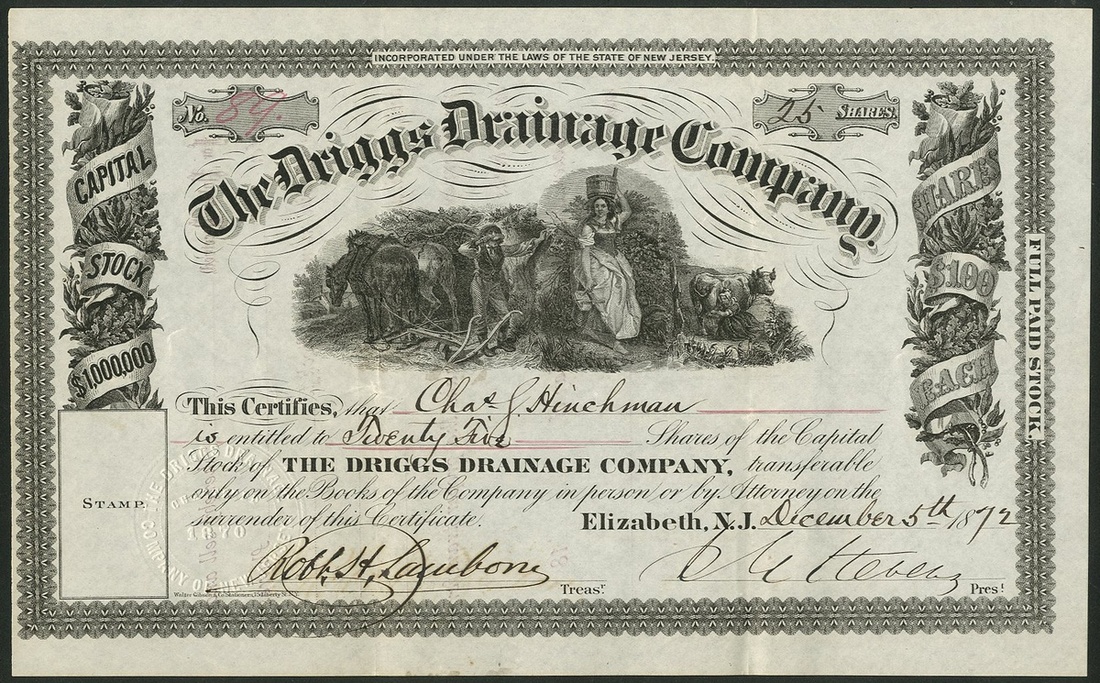 INCORPORATED UNDER THE LAWS OF THE STATE OF NEW JERSEY.
No. 89.
25 SHARES.
The Driggs Drainage Company
CAPITAL
STOCK
$1,000,000
SHARES
$100
EACH
FULL PAID STOCK.
This Certifies, that Chas. J. Hinchman
is entitled to Twenty Five Shares of the Capital
Stock of THE DRIGGS DRAINAGE COMPANY, transferable
only on the Books of the Company in person or by Attorney on the
surrender of this Certificate. Elizabeth, N.J. December 5th 1872
STAMP.
THE DRIGGS DRAINAGE
COMPANY OF NEW
1870
Robt. H. Lamborn Treasr.
Prest.